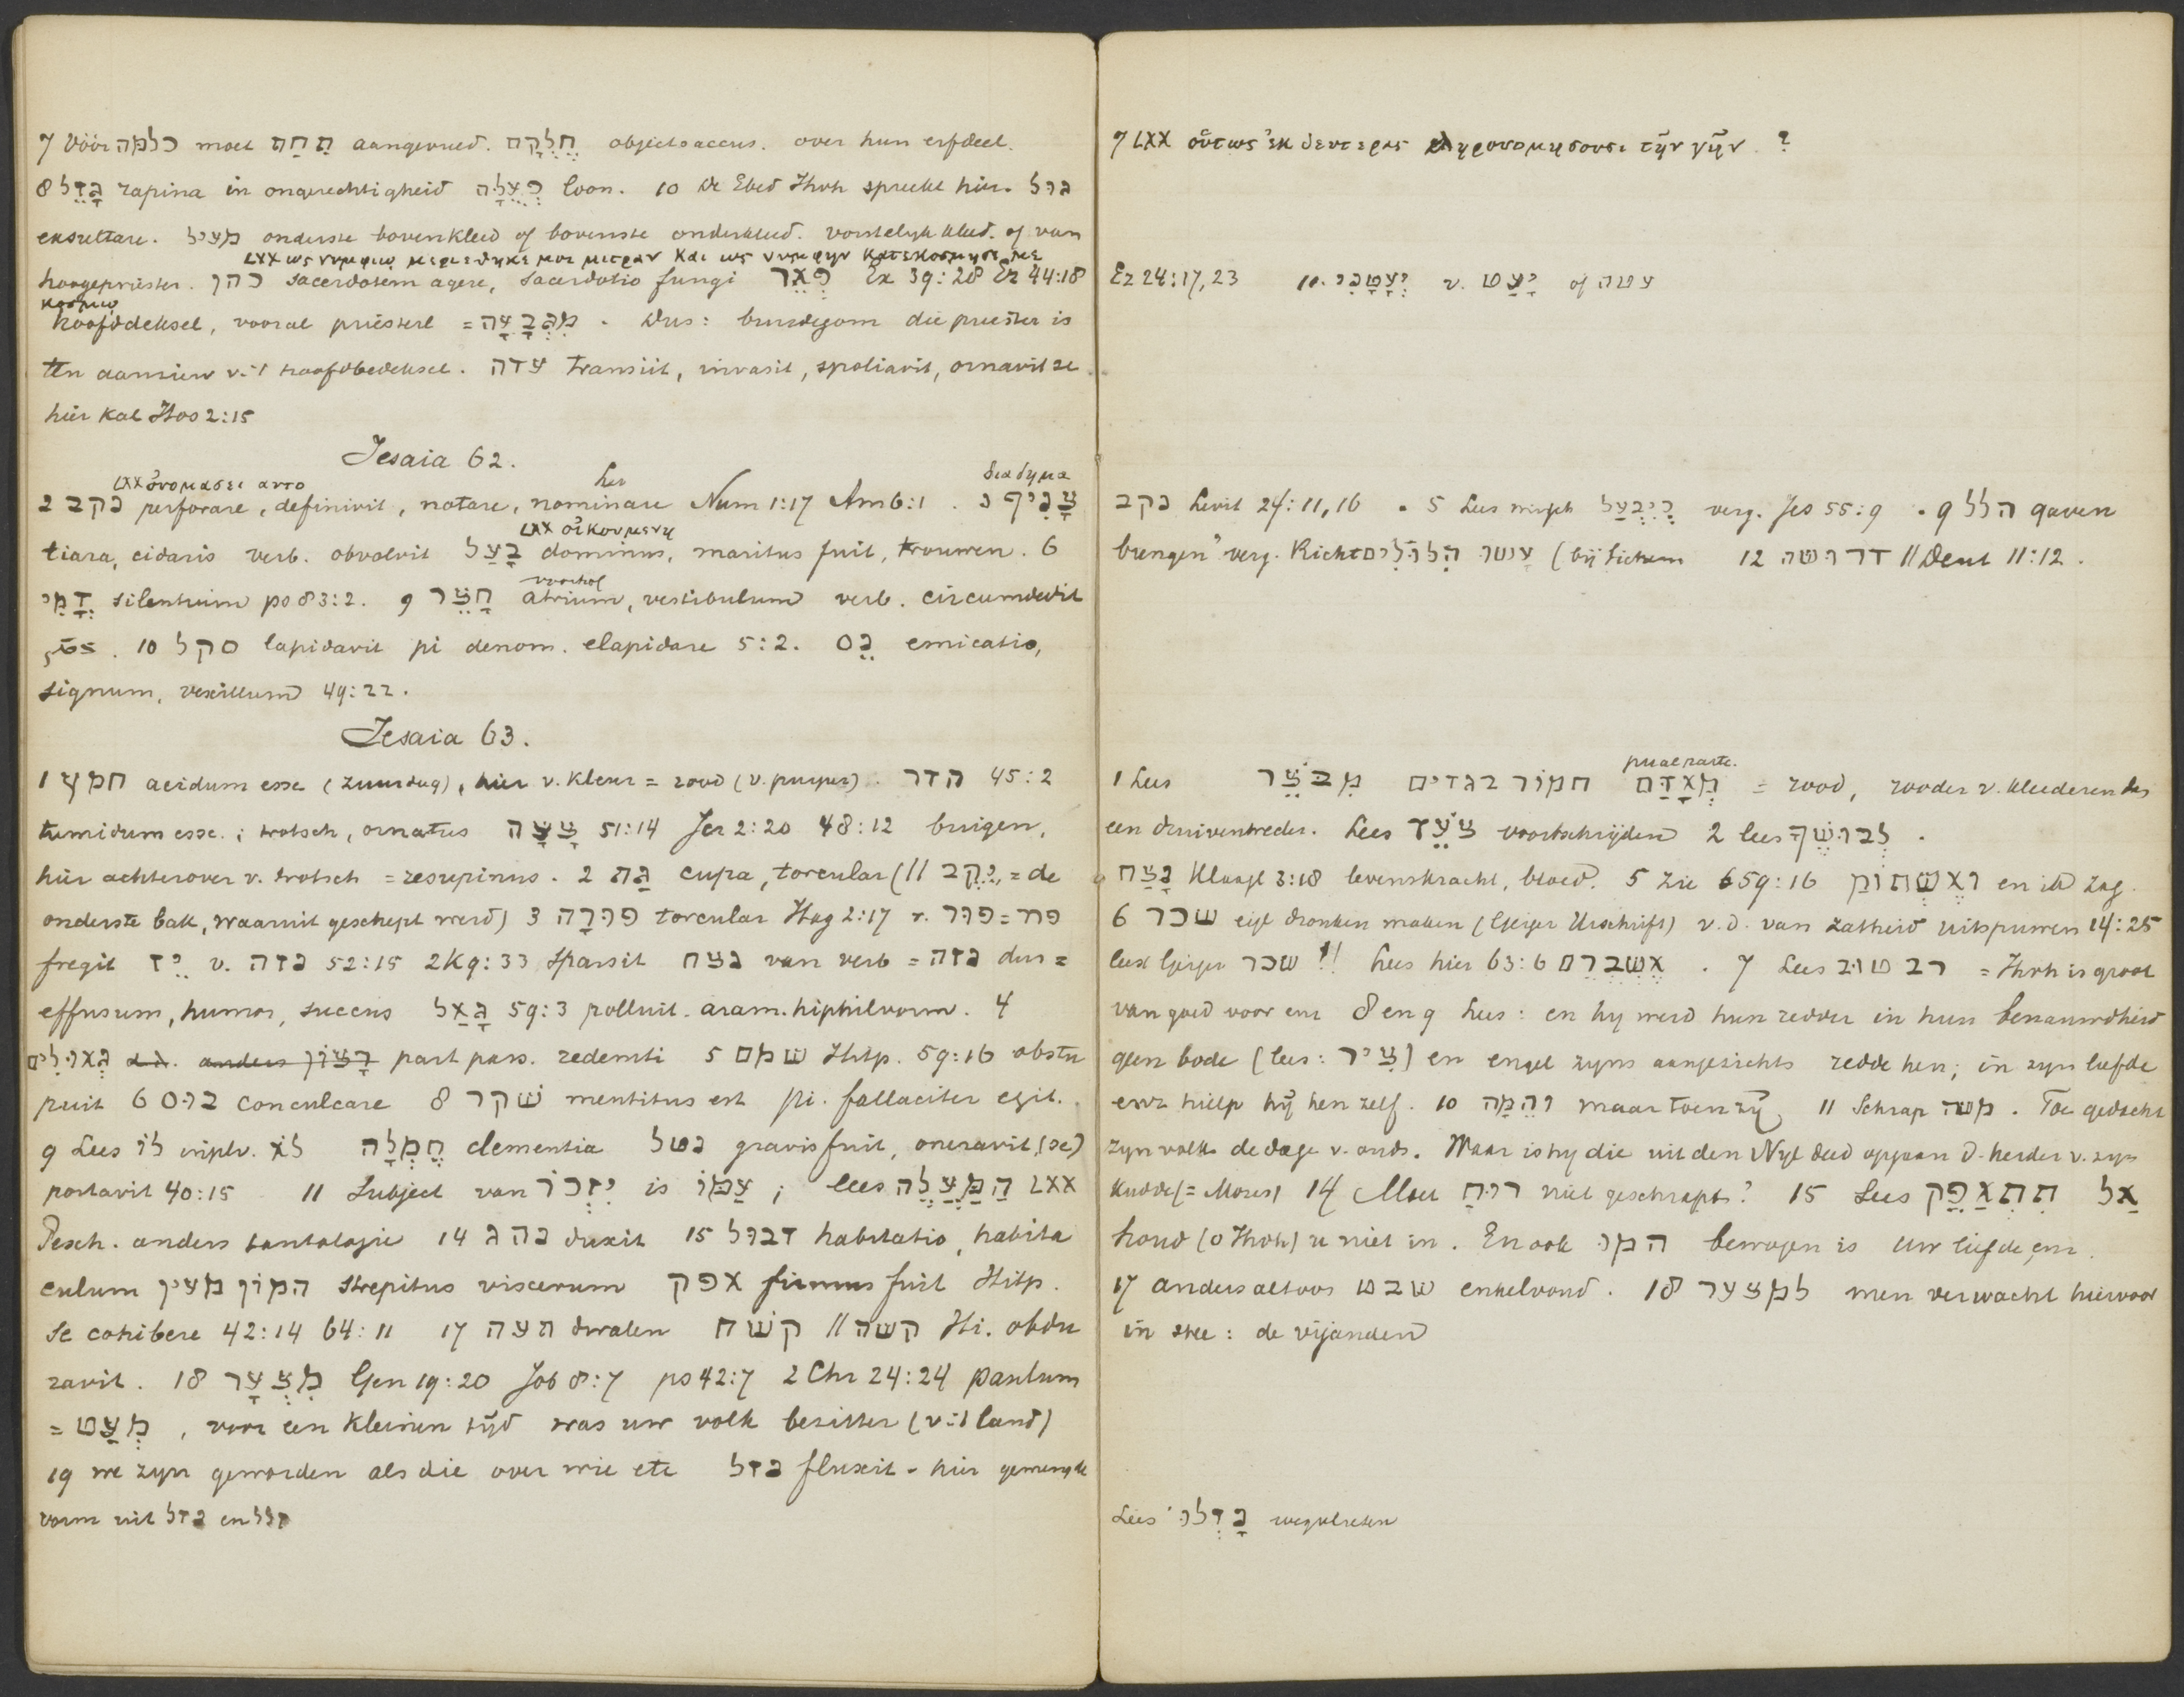 7 Vóór כלמה moet תַחַת aangevuld. חֶלְקָם objectsaccus. over hun erfdeel.
8 גָּזֵל rapina in ongerechtigheid פְּעֻלָּה loon. 10 De Ebed Jhvh spreekt hier. גיל
exsultare. מעיל onderste bovenkleed of bovenste onderkleed. vorstelijk kleed. of van
LXX ως νυμφιω περιεθηκε μοι μιτραν και ως νυμφην κατεκοσμησε με
hoogepriester. כהן sacerdotem agere, sacerdotio fungi פְּאֵר Ex 39:28 Ez 44:18
κοσμω
hoofddeksel, vooral priesterl = מִגְבָּעָה. Dus: bruidegom die priester is
ten aanzien v.'t hoofdbedeksel. עדה transiit, invasit, spoliavit, ornavit se
hier kal Hos 2:15
Jesaia 62.
LXX ὀνομασει αυτο διαδημα
2 נקב perforare, definivit, notare, nominare Num 1:17 Am 6:1. 3 צָנִיף
LXX οἰκουμενη
tiara, cidaris verb. obvolvit בָּעַל dominus, maritus fuit, trouwen. 6
voorhof
דֳּמִי silentium ps 83:2. 9 חָצֵר atrium, vestibulum verb. circumdedit
10 סקל lapidavit pi denom. elapidare 5:2. נֵס emicatio,
signum, vexillum 49:22.
Jesaia 63.
1 חמץ acidum esse (zuurdeeg), hier v. kleur = rood (v. purper). הדר 45:2
tumidum esse.; trotsch, ornatus צָעָה 51:14 Jer 2:20 48:12 buigen,
hier achterover v. trotsch = resupinus. 2 גַּת cupa, torcular (// יֶקֶב = de
onderste bak, waaruit geschept werd) 3 פּוּרָה torcular Hag 2:17 v. פור = פרר
fregit יֵז v. נזה 52:15 2Kg:33 sparsit נצח van verb = נזה dus =
effusum, humor, succus גָּאַל 59:3 polluit. aram. hiphilvorm. 4
גְּאוּלִים part pass. redemti 5 שמם Hitp. 59:16 obstu
puit 6 בוס conculcare 8 שׁקר mentitus est pi. fallaciter egit.
9 Lees לוֹ inplv. לֹא חֶמְלָה clementia נטל gravis fuit, oneravit, (se)
portavit 40:15 11 Subject van יִזְכֹּר is עַמּוֹ; lees הַמַּעֲלֶה LXX
Pesch. anders tautologie 14 נהג duxit 15 זבול habitatio, habita
culum המון מעין strepitus viscerum אפק firmus fuit Hitp.
se cohibere 42:14 64:11 17 תעה dwalen קשה // קשׁח Hi. obdu
ravit. 18 מִצְעָר Gen 19:20 Job 8:7 ps 42:7 2 Chr 24:24 paulum
= מְעַט, voor een kleinen tijd was uw volk bezitter (v.'t land)
19 we zyn geworden als die over wie etc נזל fluxit. hier gemengde
vorm uit נזל en זלל
7 LXX οὕτως ἐκ δευτερας κληρονομησουσι τὴν γῆν ?
Ez 24:17,23 11. יְעָטָנִי v. יָעַט of עטה
נקב Levit 24:11,16. 5 Lees כִּיבְעֹל verg. Jes 55:9. 9 הלל gaven
brengen" verg. Richt עשו הִלּוּלִים (bij Sichem 12 דרושה // Deut 11:12.
pual partc.
1 Lees מִבֹּצֵר חמוץ בגדים מְאָדָּם = rood, rooder v. kleederen dan
een druiventreder. Lees צֹעֵד voortschrijden 2 lees לִבְרוּשֶׁךָ.
נֵצַח Klaagl 3:18 levenskracht, bloed. 5 Zie 59:16 en ik zag.
6 שכר eigl dronken maken (Geiger Urschrift) v.d. van zatheid uitspuwen 14:25
leest Geiger שכר !! Lees hier 63:6 אֲשַׁבְּרֵם. 7 Lees רב טוב = Jhvh is groot
van goed voor enz 8 en 9 Lees: en hy werd hun redder in hun benauwdheid
geen bode (lees: צִיר) en engel zyns aangezichts redde hen; in zyn liefde
enz hielp hij hen zelf. 10 וְהֵמָּה maar toen zy 11 Schrap משה. Toe gedacht
zyn volk de dage v. ouds. Waar is hy die uit den Nyl deed opgaan d. herder v. zyn
kudde (= Mozes) 14 Moet רוּחַ niet geschrapt? 15 Lees אַל תִּתְאַפַּק
houd (o Jhvh) u niet in. En ook המו bewogen is uw liefde, enz.
17 anders altoos שבט enkelvoud. 18 למצער men verwacht hiervoor
in stee: de vijanden
Lees נָזְלוּ wegvlieten